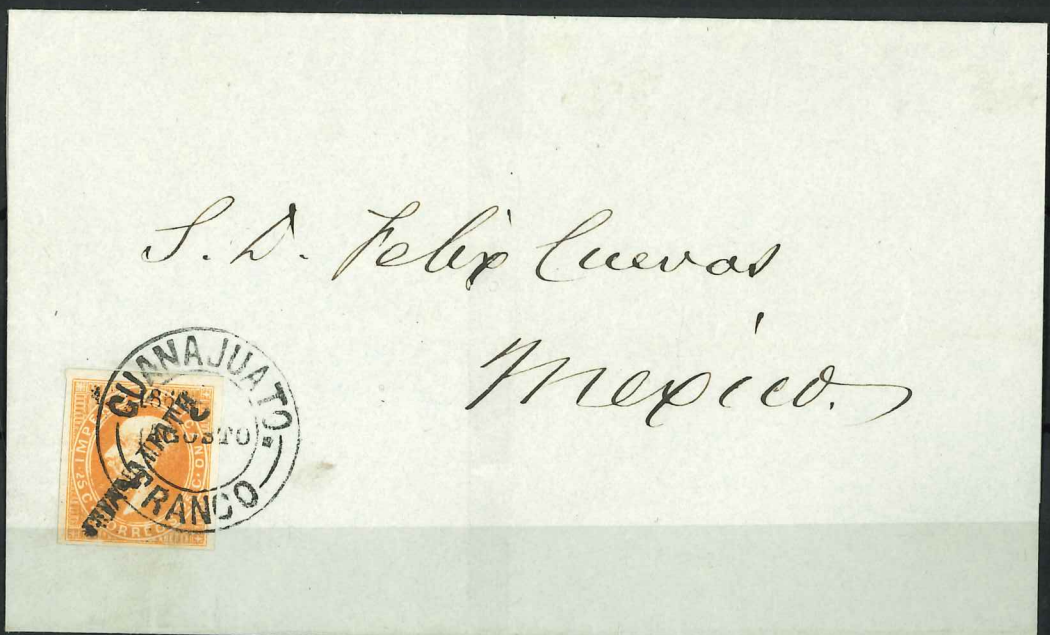 S. D. Felix Cuevas
Mexico.
GUANAJUATO.
AGOSTO
FRANCO
GUANAJUATO
CORREO